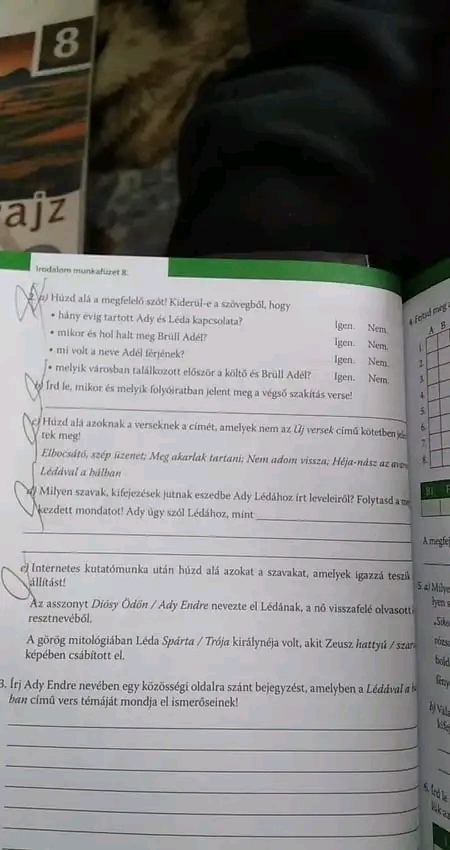 8
ajz
Irodalom munkafüzet 8.
a) Húzd alá a megfelelő szót! Kiderül-e a szövegből, hogy
• hány évig tartott Ady és Léda kapcsolata? Igen. Nem.
• mikor és hol halt meg Brüll Adél? Igen. Nem.
• mi volt a neve Adél férjének? Igen. Nem.
• melyik városban találkozott először a költő és Brüll Adél? Igen. Nem.
b) Írd le, mikor és melyik folyóiratban jelent meg a végső szakítás verse!
c) Húzd alá azoknak a verseknek a címét, amelyek nem az Új versek című kötetben
tek meg!
Elbocsátó, szép üzenet; Meg akarlak tartani; Nem adom vissza; Héja-nász az
Lédával a bálban
d) Milyen szavak, kifejezések jutnak eszedbe Ady Lédához írt leveleiről? Folytasd a
kezdett mondatot! Ady úgy szól Lédához, mint
e) Internetes kutatómunka után húzd alá azokat a szavakat, amelyek igazzá teszik
állítást!
Az asszonyt Diósy Ödön / Ady Endre nevezte el Lédának, a nő visszafelé olvasott
resztnevéből.
A görög mitológiában Léda Spárta / Trója királynéja volt, akit Zeusz hattyú /
képében csábított el.
3. Írj Ady Endre nevében egy közösségi oldalra szánt bejegyzést, amelyben a Lédával a
ban című vers témáját mondja el ismerőseinek!
4. Fejtsd meg
A B
1.
2.
3.
4.
5.
6.
7.
8.
A megfej
5. a) Milye
lyen s
rózs
bold
fény
b) Vála
kife
6. Írd le